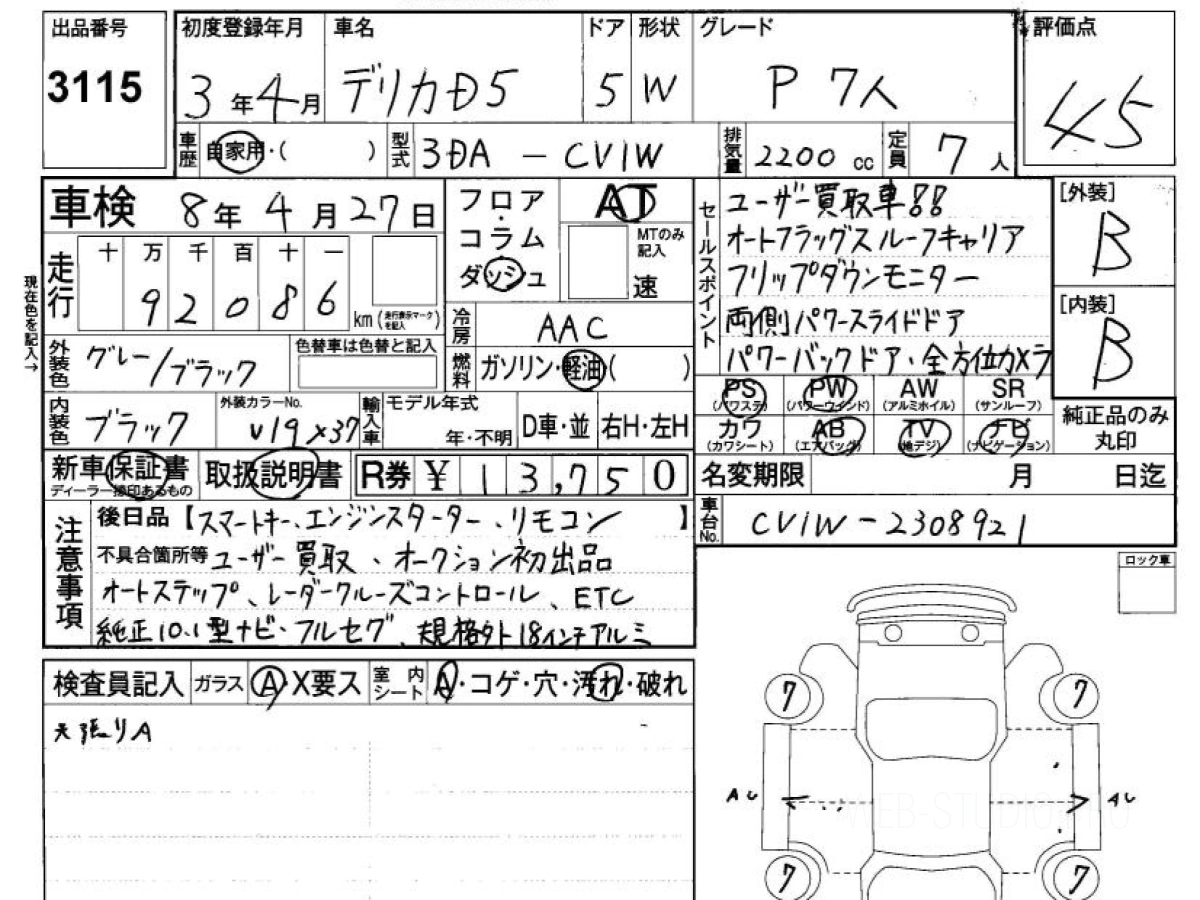 出品番号 初度登録年月 車名 ドア 形状 グレード 評価点
3115 3年4月 デリカD5 5 W P 7人 4.5
車歴 自家用・( ) 型式 3DA-CV1W 排気量 2200cc 定員 7人
車検 8年4月27日
フロア・コラム ダッシュ AT
MTのみ記入 速
セールスポイント ユーザー買取車!!
オートフラッグスルーフキャリア
フリップダウンモニター
両側パワースライドドア
パワーバックドア・全方位カメラ
[外装] B
[内装] B
現在色を記入→
走行 十 万 千 百 十 一
9 2 0 8 6 km (走行表示マークを記入)
冷房 AAC
外装色 グレー/ブラック 色替車は色替と記入
燃料 ガソリン・軽油( )
PS (パワステ) PW (パワーウインド) AW (アルミホイル) SR (サンルーフ) 純正品のみ丸印
カワ (カワシート) AB (エアバッグ) TV (地デジ) ナビ (ナビゲーション)
内装色 ブラック 外装カラーNo. V19×37 輸入車 モデル年式 年・不明 D車・並 右H・左H
新車保証書 ディーラー捺印あるもの 取扱説明書 R券 ¥13,750
名変期限 月 日迄
車台No. CV1W-2308921
注意事項 後日品【スマートキー、エンジンスターター、リモコン】
不具合箇所等 ユーザー買取、オークション初出品
オートステップ、レーダークルーズコントロール、ETC
純正10.1型ナビ・フルセグ、規格外18インチアルミ
ロック車
検査員記入 ガラス A・X要ス 室内シート A・コゲ・穴・汚れ・破れ
天張りA
7 7
AU AU
WEB-STUDIO.RU
7 7